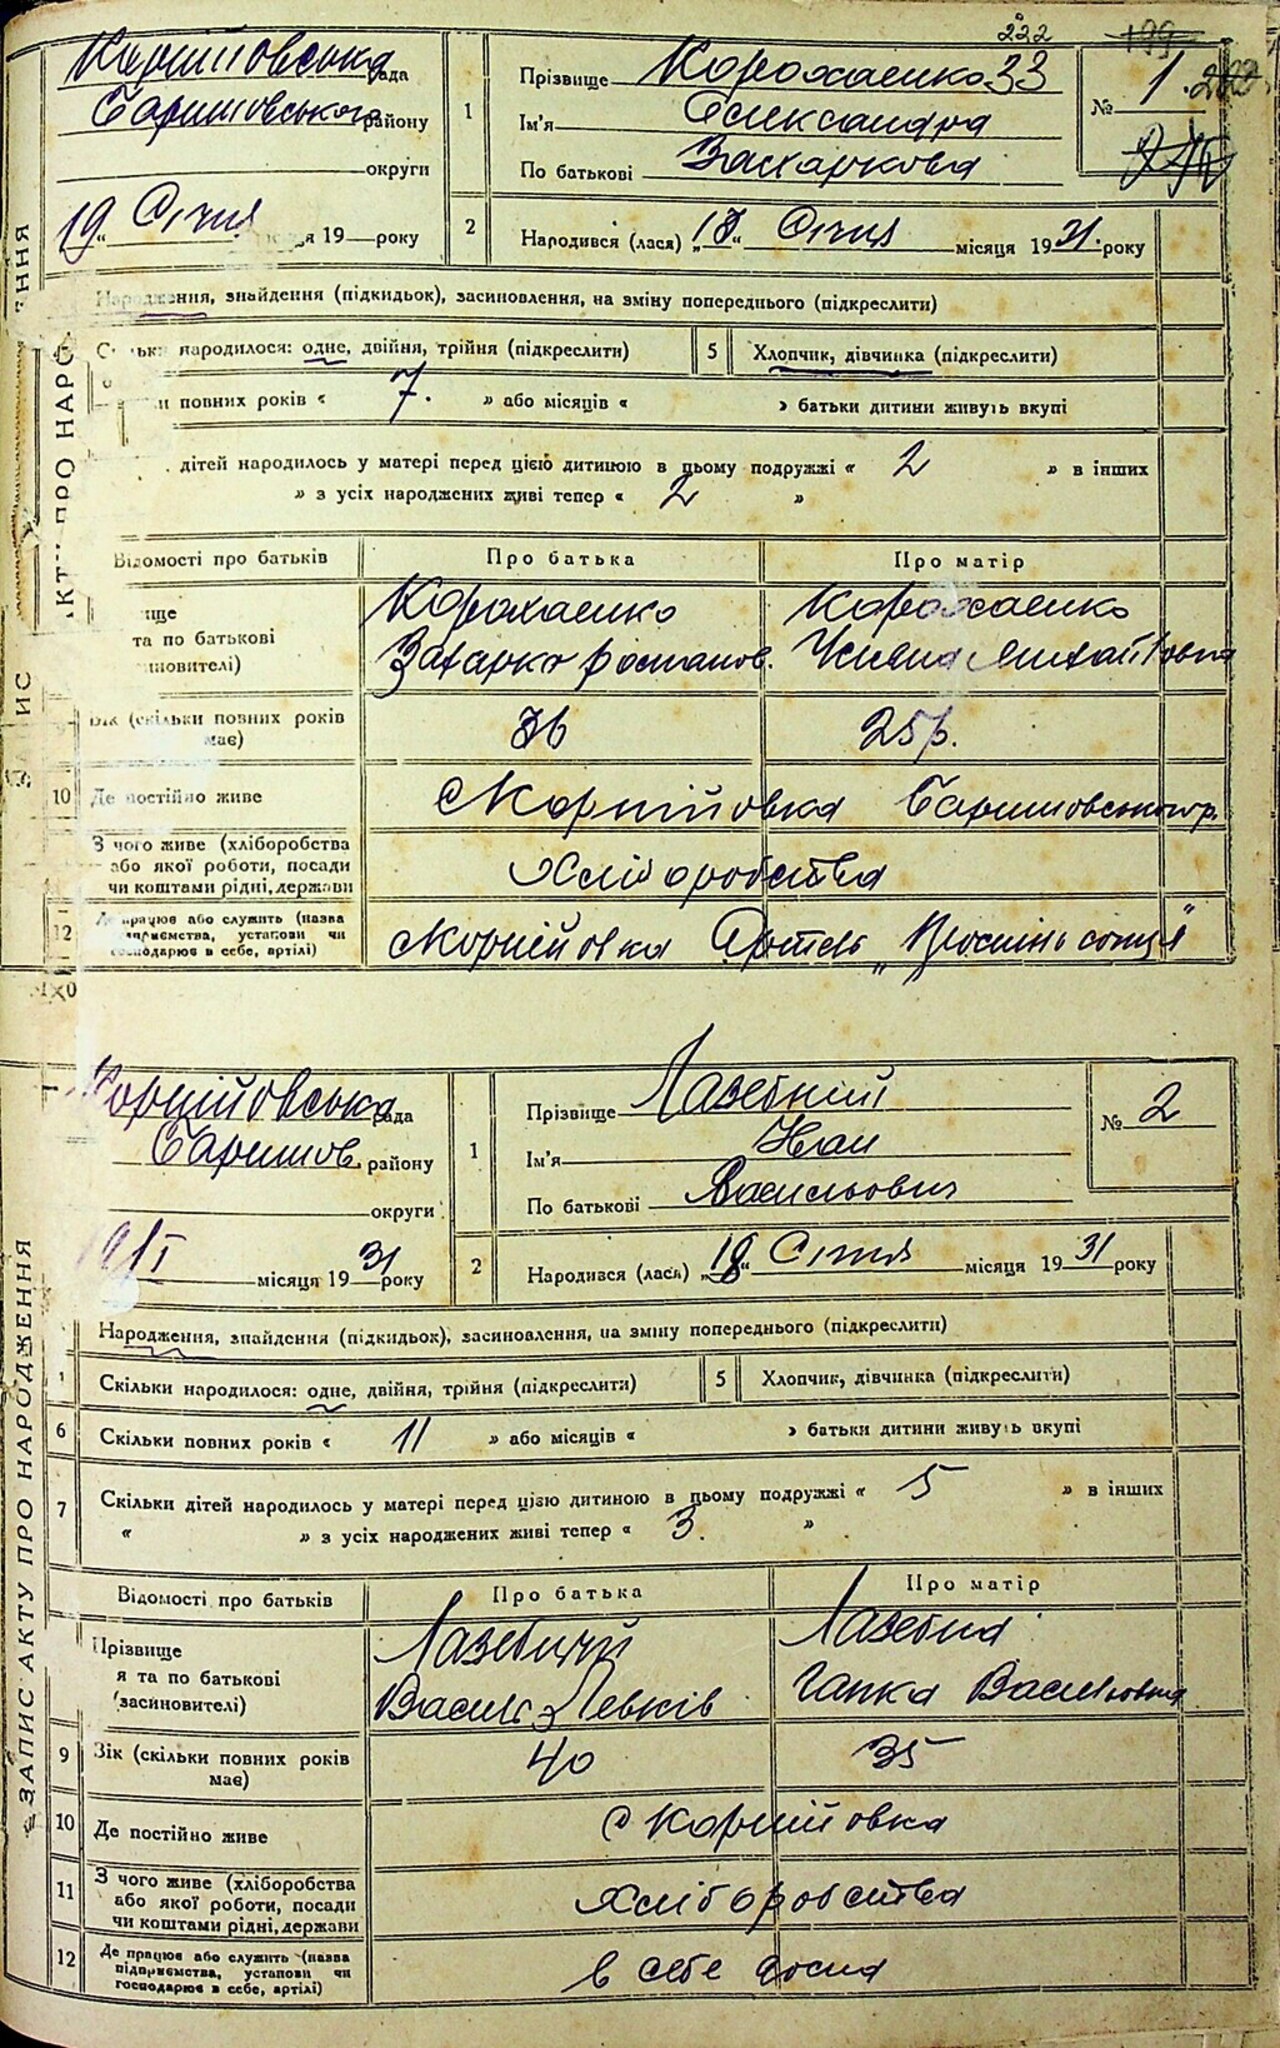 222
Корнійовська рада
Баришовського району
округи
"19" Січня 19 року
1
Прізвище Корохаенко 33
Ім'я Олександра
По батькові Захаркова
№ 1.
2
Народився (лася) "18" Січня місяця 1931. року
Народження, знайдення (підкидьок), засиновлення, на зміну попереднього (підкреслити)
народилося: одне, двійня, трійня (підкреслити)
5
Хлопчик, дівчинка (підкреслити)
повних років « 7. » або місяців « » батьки дитини живуть вкупі
дітей народилось у матері перед цією дитиною в цьому подружжі « 2 » в інших
» з усіх народжених живі тепер « 2 »
Відомості про батьків
Про батька
Про матір
та по батькові
Корохаенко
Захарко Романов.
Корохаенко
Михайловна
Вік (скільки повних років має)
36
25 р.
10
Де постійно живе
с Корнійовка Баришовського р.
З чого живе (хліборобства
або якої роботи, посади
чи коштами рідні, держави
Хліборобства
12
Де працює або служить (назва
підприємства, установи чи
господарює в себе, артілі)
с Корнійовка Артель „Промінь сонця"
ЗАПИС АКТУ ПРО НАРОДЖЕННЯ
Корнійовська рада
Баришов. району
округи
19/I місяця 1931 року
1
Прізвище Лазебний
Ім'я Іван
По батькові Васильович
№ 2
2
Народився (лася) "18" Січня місяця 1931 року
Народження, знайдення (підкидьок), засиновлення, на зміну попереднього (підкреслити)
Скільки народилося: одне, двійня, трійня (підкреслити)
5
Хлопчик, дівчинка (підкреслити)
6
Скільки повних років « 11 » або місяців « » батьки дитини живуть вкупі
7
Скільки дітей народилось у матері перед цією дитиною в цьому подружжі « 5 » в інших
« » з усіх народжених живі тепер « 3. »
Відомості про батьків
Про батька
Про матір
Прізвище
я та по батькові
(засиновителі)
Лазебний
Василь Левків
Лазебна
Ганка Васильовна
9
Вік (скільки повних років має)
40
35
10
Де постійно живе
с Корнійовка
11
З чого живе (хліборобства
або якої роботи, посади
чи коштами рідні, держави
Хліборобства
12
Де працює або служить (назва
підприємства, установи чи
господарює в себе, артілі)
в себе дома
«ЗАПИС АКТУ ПРО НАРОДЖЕННЯ